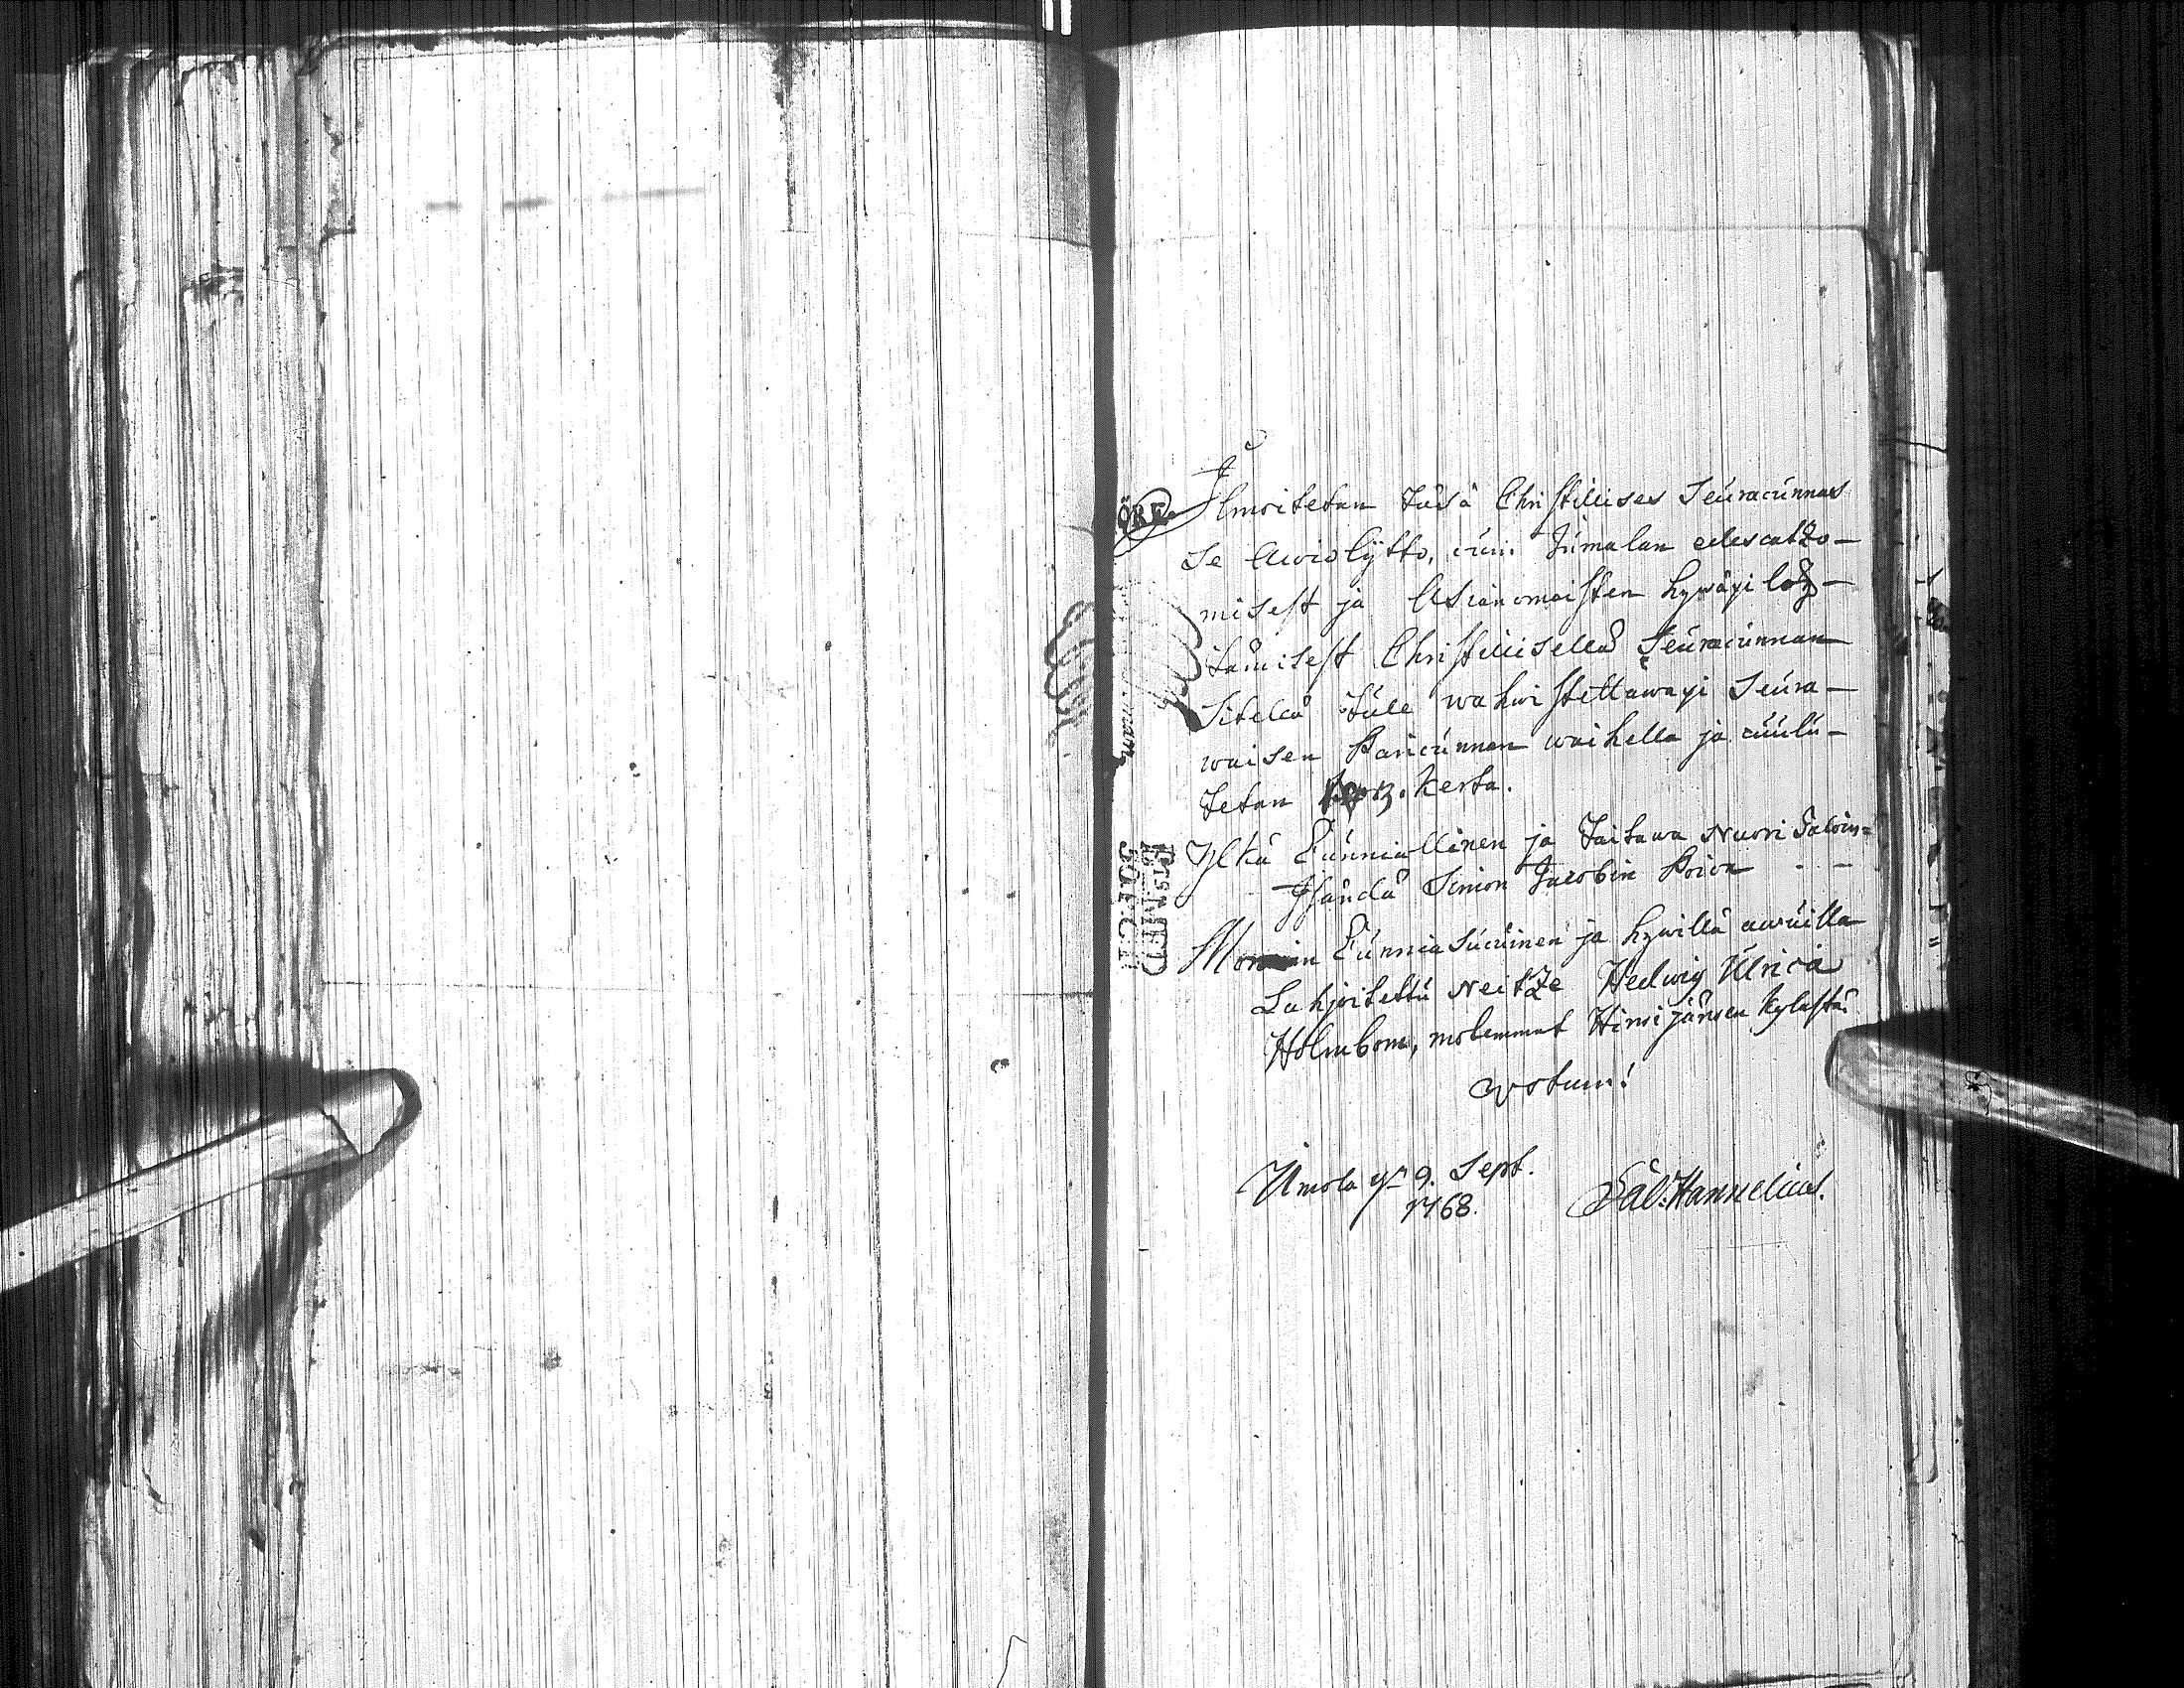 ÖRE.
Ilmoitetan täsä Christillises Seuracunnas
se Awiolijtto, cuin Jumalan edescatzo-
misest ja Asianomaisten hywäxi lög-
tämisest Christillisellä Seuracunnan
Sitellä tule wahwistettawaxi Seura-
waisen Pariscunnan waihella ja cuulu-
tetan 3. kerta.
Yltä Cunniallinen ja Taitawa Nuori Taloin-
Isändä Simon Jacobin Poica - -
Monin Cunnia sucuinen ja hywillä awuilla
Lahjoitettu Neitze Hedwig Ulrica
Holmbom, molemmat Hinsijärwen kyläst.
votum!
Umola 9. Sept.
1768.
Sal: Hannelius.